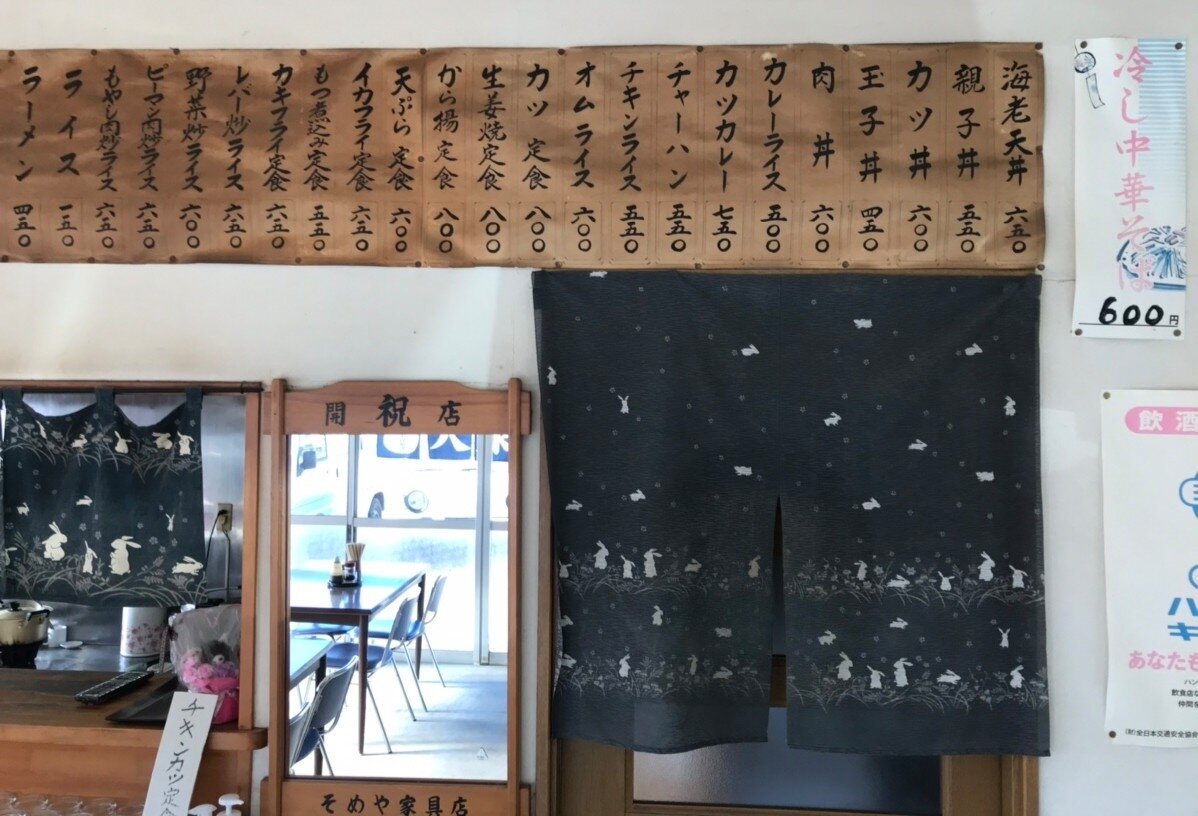 海老天丼 六五〇
親子丼 五五〇
カツ丼 六〇〇
玉子丼 四五〇
肉丼 六〇〇
カレーライス 五〇〇
カツカレー 七五〇
チャーハン 五五〇
チキンライス 五五〇
オムライス 六〇〇
カツ定食 八〇〇
生姜焼定食 八〇〇
から揚定食 八〇〇
天ぷら定食 六〇〇
イカフライ定食 六五〇
もつ煮込み定食 五五〇
カキフライ定食 六五〇
レバー炒ライス 六五〇
野菜炒ライス 六〇〇
ピーマン肉炒ライス 六五〇
もやし肉炒ライス 六五〇
ライス 一五〇
ラーメン 四五〇
冷し中華そば
600円
開祝店
そめや家具店
チキンカツ定食
飲酒
ハ
キ
あなたも
ハン
飲食店な
仲間を
(財)全日本交通安全協会